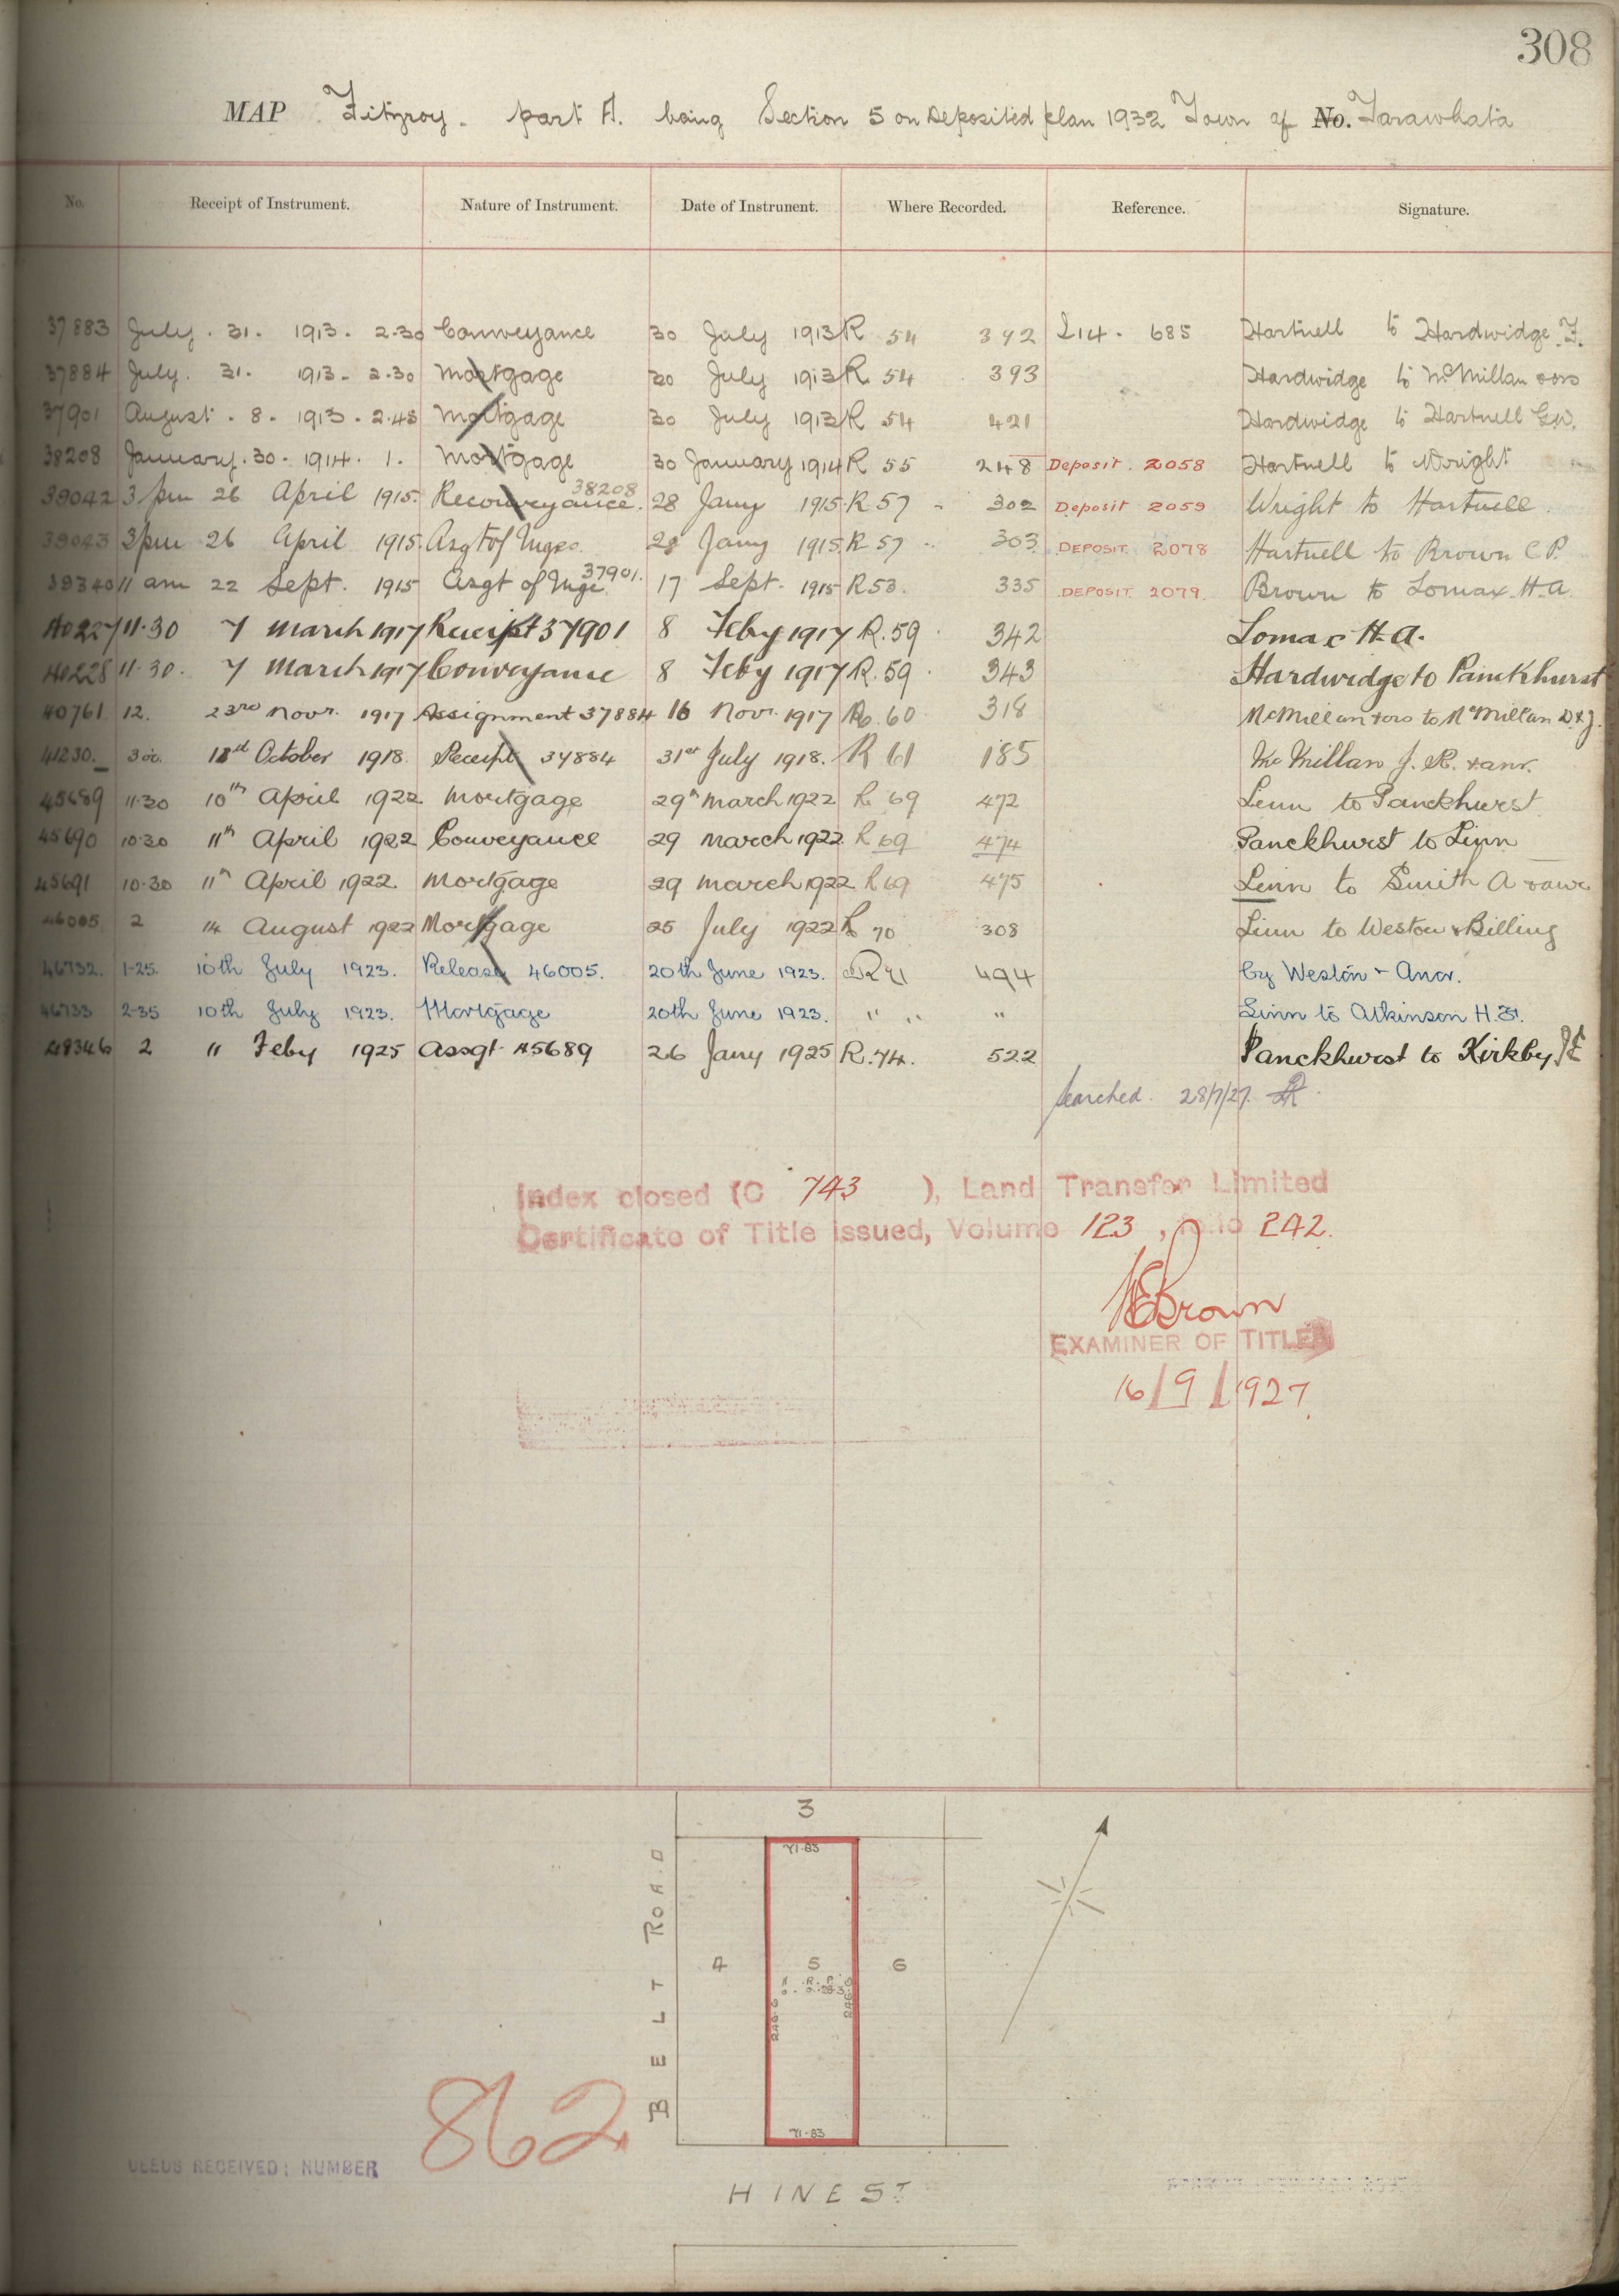 308
MAP Fitzroy. part A. being Section 5 on Deposited plan 1932 Town of No. Tarawhata
No. Receipt of Instrument. Nature of Instrument. Date of Instrument. Where Recorded. Reference. Signature.
37883 July. 31. 1913. 2.30 Conveyance 30 July 1913 R 54 392 I14. 685 Hartnell to Hardwidge F.
37884 July. 31. 1913. 2.30 Mortgage 30 July 1913 R 54 393 Hardwidge to McMillan
37901 August. 8. 1913. 2.45 Mortgage 30 July 1913 R 54 421 Hardwidge to Hartnell G.W.
38208 January. 30. 1914. 1. Mortgage 30 January 1914 R 55 248 Deposit. 2058 Hartnell to Wright
39042 3 pm 26 April 1915. Reconveyance 38208. 28 Jany 1915. R 57 302 Deposit 2059 Wright to Hartnell.
39043 3 pm 26 April 1915. Asgt of Mges. 28 Jany 1915 R 57 303 DEPOSIT. 2078 Hartnell to Brown C P.
39340 11 am 22 Sept. 1915 Asgt of Mge 37901. 17 Sept. 1915 R 53. 335 DEPOSIT. 2079. Brown to Lomax H.A.
40227 11.30 7 March 1917 Receipt 37901 8 Feby 1917 R. 59. 342 Lomax H.A.
40228 11.30. 7 March 1917 Conveyance 8 Feby 1917 R. 59. 343 Hardwidge to Panckhurst
40761 12. 23rd Novr. 1917 Assignment 37884 16 Novr. 1917 R. 60 318 McMillan to McMillan D & J.
41230. 3 18th October 1918. Receipt 37884 31st July 1918. R 61 185 McMillan J. R. & anr.
45689 11.30 10th April 1922 Mortgage 29th March 1922 R 69 472 Linn to Panckhurst
45690 10.30 11th April 1922 Conveyance 29 March 1922 R 69 474 Panckhurst to Linn
45691 10.30 11th April 1922. Mortgage 29 March 1922 R 69 475 Linn to Smith A & anr
46005 2 14 August 1922 Mortgage 25 July 1922 R 70 308 Linn to Weston & Billing
46732. 1-25. 10th July 1923. Release 46005. 20th June 1923. R 71 494 by Weston & Anor.
46733 2-35 10th July 1923. Mortgage 20th June 1923. " " " Linn to Atkinson H.
48346 2 11 Feby 1925 Assgt 45689 26 Jany 1925 R. 74. 522 Panckhurst to Kirkby
Searched. 28/7/27.
Index closed (C 743 ), Land Transfer Limited
Certificate of Title issued, Volume 123, folio 242.
Brown
EXAMINER OF TITLES
16/9/1927
3
71.83
BELT ROAD
4 5 6
246.6
246.6
71.83
862
DEEDS RECEIVED: NUMBER
HINE ST